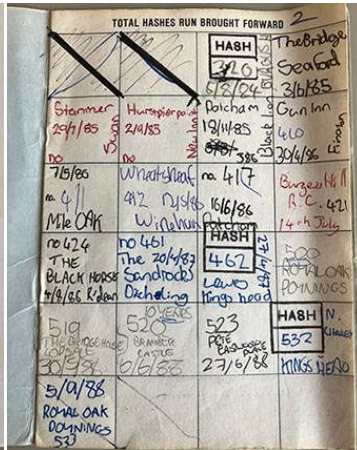 TOTAL HASHES RUN BROUGHT FORWARD 2
HASH
320
6/8/84
The Bridge
Seaford
3/6/85
Stanmer
29/7/85
no
Swan
Hurstpierpoint
2/9/85
no
New Inn
Patcham
18/11/85
386
Black Lion
Gun Inn
410
30/4/86
Findon
7/5/86
no. 411
Mile OAK
Wheatsheaf
412
no. 417
16/6/86
Patcham
Burgess Hill
R.C. 421
14th July
no 424
THE
BLACK HORSE
4/8/86
no 461
The 20/4/87
Sandrocks
Ditchling
HASH
462
27/4/87
Lewes
Kings head
500
ROYAL OAK
POYNINGS
519
THE BRIDGE HOUSE
30/5/88
10 YEARS
520
BRAMBER
CASTLE
6/6/88
523
PETE
27/6/88
HASH
532
KINGS HEAD
5/9/88
ROYAL OAK
POYNINGS
533